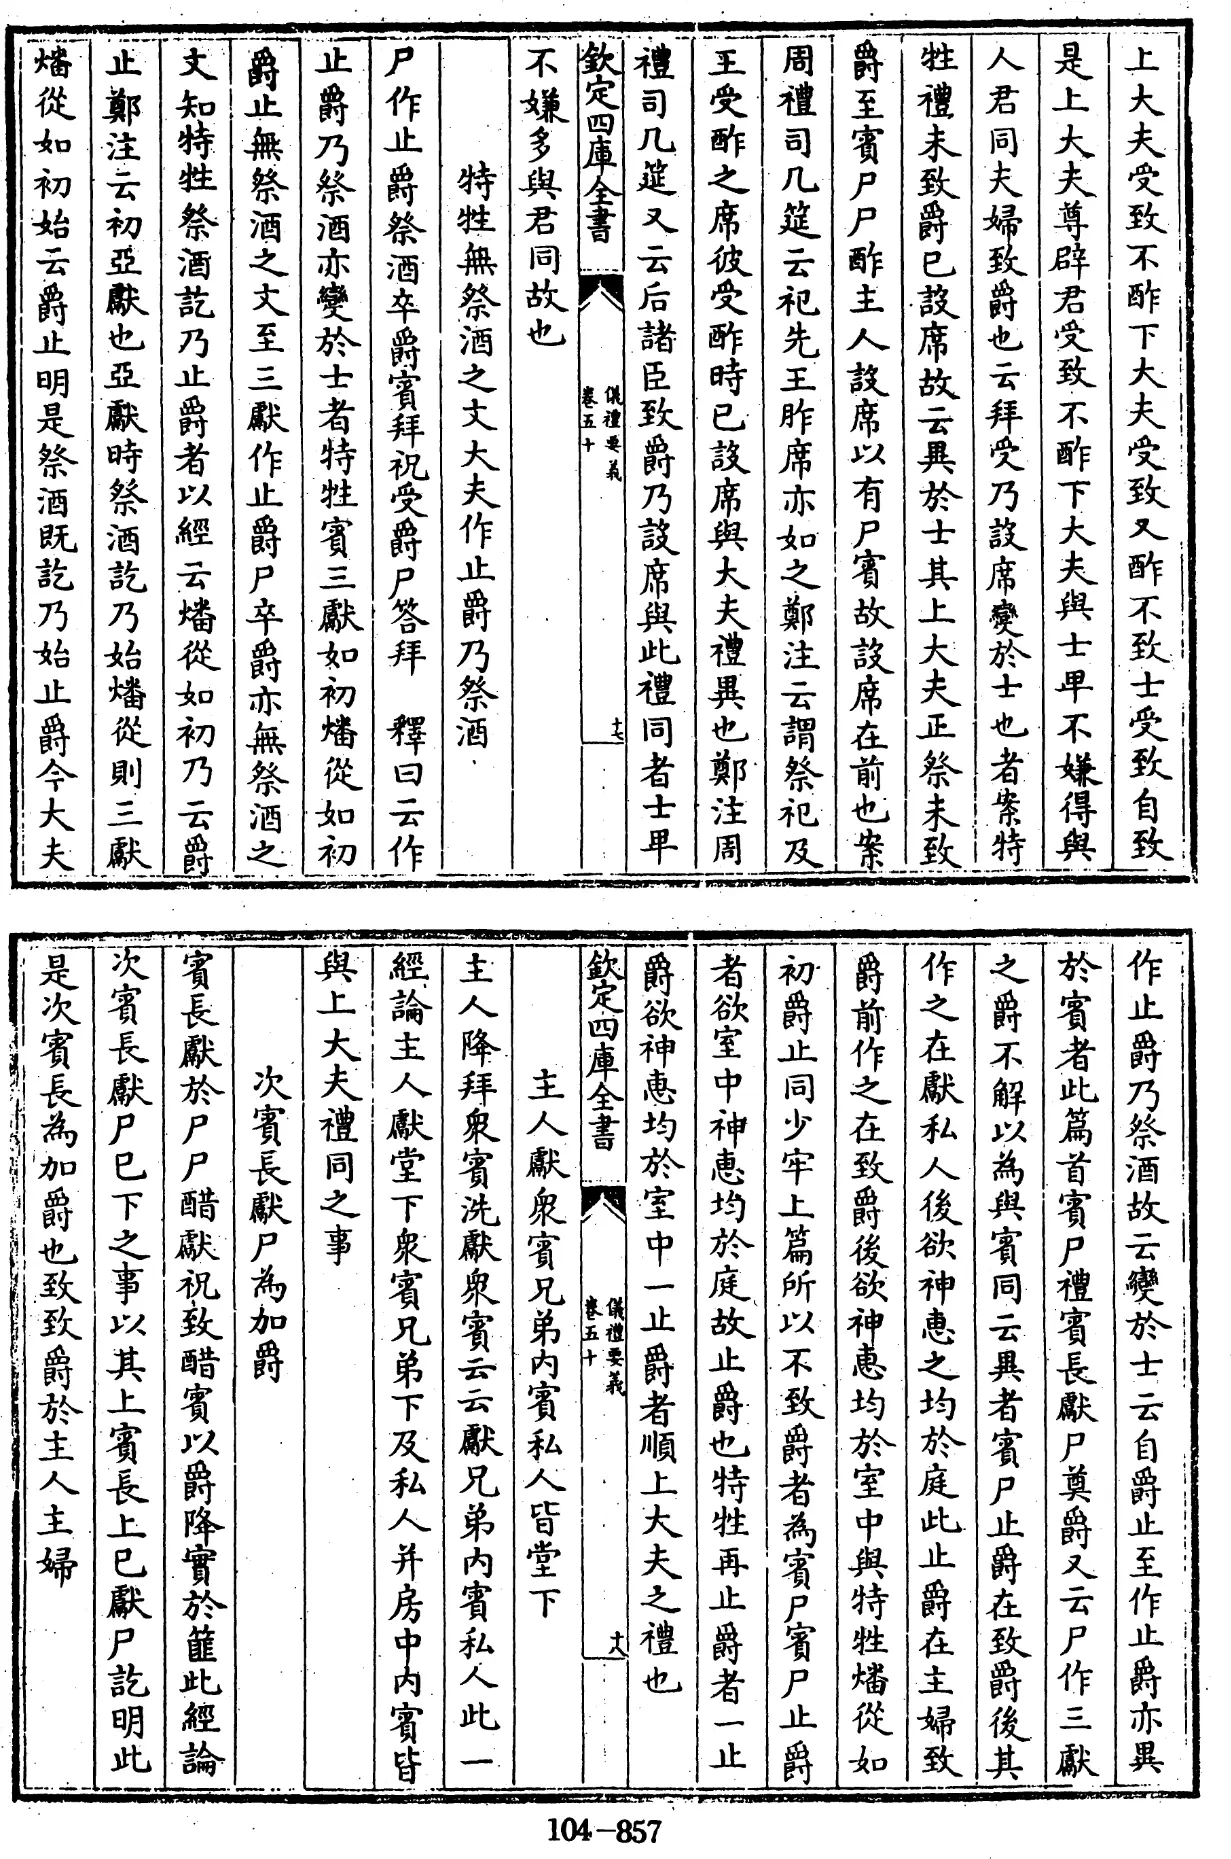 上大夫受致不酢下大夫受致又酢不致士受致自致
是上大夫尊辟君受致不酢下大夫與士卑不嫌得與
人君同夫婦致爵也云拜受乃設席變於士也者案特
牲禮未致爵已設席故云異於士其上大夫正祭未致
爵至賓尸尸酢主人設席以有尸賓故設席在前也案
周禮司几筵云祀先王昨席亦如之鄭注云謂祭祀及
王受酢之席彼受酢時已設席與大夫禮異也鄭注周
禮司几筵又云后諸臣致爵乃設席與此禮同者士卑
欽定四庫全書
儀禮要義
卷五十
十七
不嫌多與君同故也
特牲無祭酒之文大夫作止爵乃祭酒
尸作止爵祭酒卒爵賓拜祝受爵尸答拜　釋曰云作
止爵乃祭酒亦變於士者特牲賓三獻如初燔從如初
爵止無祭酒之文至三獻作止爵尸卒爵亦無祭酒之
文知特牲祭酒訖乃止爵者以經云燔從如初乃云爵
止鄭注云初亞獻也亞獻時祭酒訖乃始燔從則三獻
燔從如初始云爵止明是祭酒既訖乃始止爵今大夫
作止爵乃祭酒故云變於士云自爵止至作止爵亦異
於賓者此篇首賓尸禮賓長獻尸奠爵又云尸作三獻
之爵不解以為與賓同云異者賓尸止爵在致爵後其
作之在獻私人後欲神惠之均於庭此止爵在主婦致
爵前作之在致爵後欲神惠均於室中與特牲燔從如
初爵止同少牢上篇所以不致爵者為賓尸賓尸止爵
者欲室中神惠均於庭故止爵也特牲再止爵者一止
爵欲神惠均於室中一止爵者順上大夫之禮也
欽定四庫全書
儀禮要義
卷五十
十八
主人獻衆賓兄弟內賓私人皆堂下
主人降拜衆賓洗獻衆賓云云獻兄弟內賓私人此一
經論主人獻堂下衆賓兄弟下及私人并房中內賓皆
與上大夫禮同之事
次賓長獻尸為加爵
賓長獻於尸尸醋獻祝致醋賓以爵降實於篚此經論
次賓長獻尸已下之事以其上賓長上已獻尸訖明此
是次賓長為加爵也致致爵於主人主婦
104-857